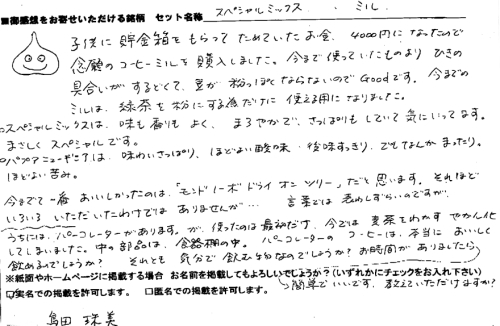 ■御感想をお寄せいただける銘柄 セット名称 スペシャルミックス ・ ミル
子供に貯金箱をもらってためていたお金、4000円になったので
念願のコーヒーミルを購入しました。今まで使っていたものより ひきの
具合いがするどくて、豆が粉っぽくならないのでGoodです。今までの
ミルは、緑茶を粉にする為だけに使える用になりました。
○スペシャルミックスは、味も香りもよく、まろやかで、さっぱりもしていて気にいってます。
まさしくスペシャルです。
○パプアニューギニアは、味わいさっぱり、ほどよい酸味・後味すっきり、でもなんかまったり。
ほどよい苦み。
今までで一番おいしかったのは、「モンドノーボ ドライ オン ツリー」だと思います。それほど
いろいろいただいたわけではありませんが… 言葉では表わしずらいのですが、
うちには、パーコレーターがあります。が、使ったのは最初だけ、今では麦茶をわかす やかん化
してしまいました。中の部品は、食器棚の中。パーコレーターのコーヒーは、本当においしく
飲めるのでしょうか? それとも気分で飲むものなのでしょうか? お時間がありましたら
簡単でいいです、教えていただけますか?
※紙面やホームページに掲載する場合 お名前を掲載してもよろしいでしょうか?(いずれかにチェックをお入れ下さい)
☑実名での掲載を許可します。 □匿名での掲載を許可します。
島田 珠美